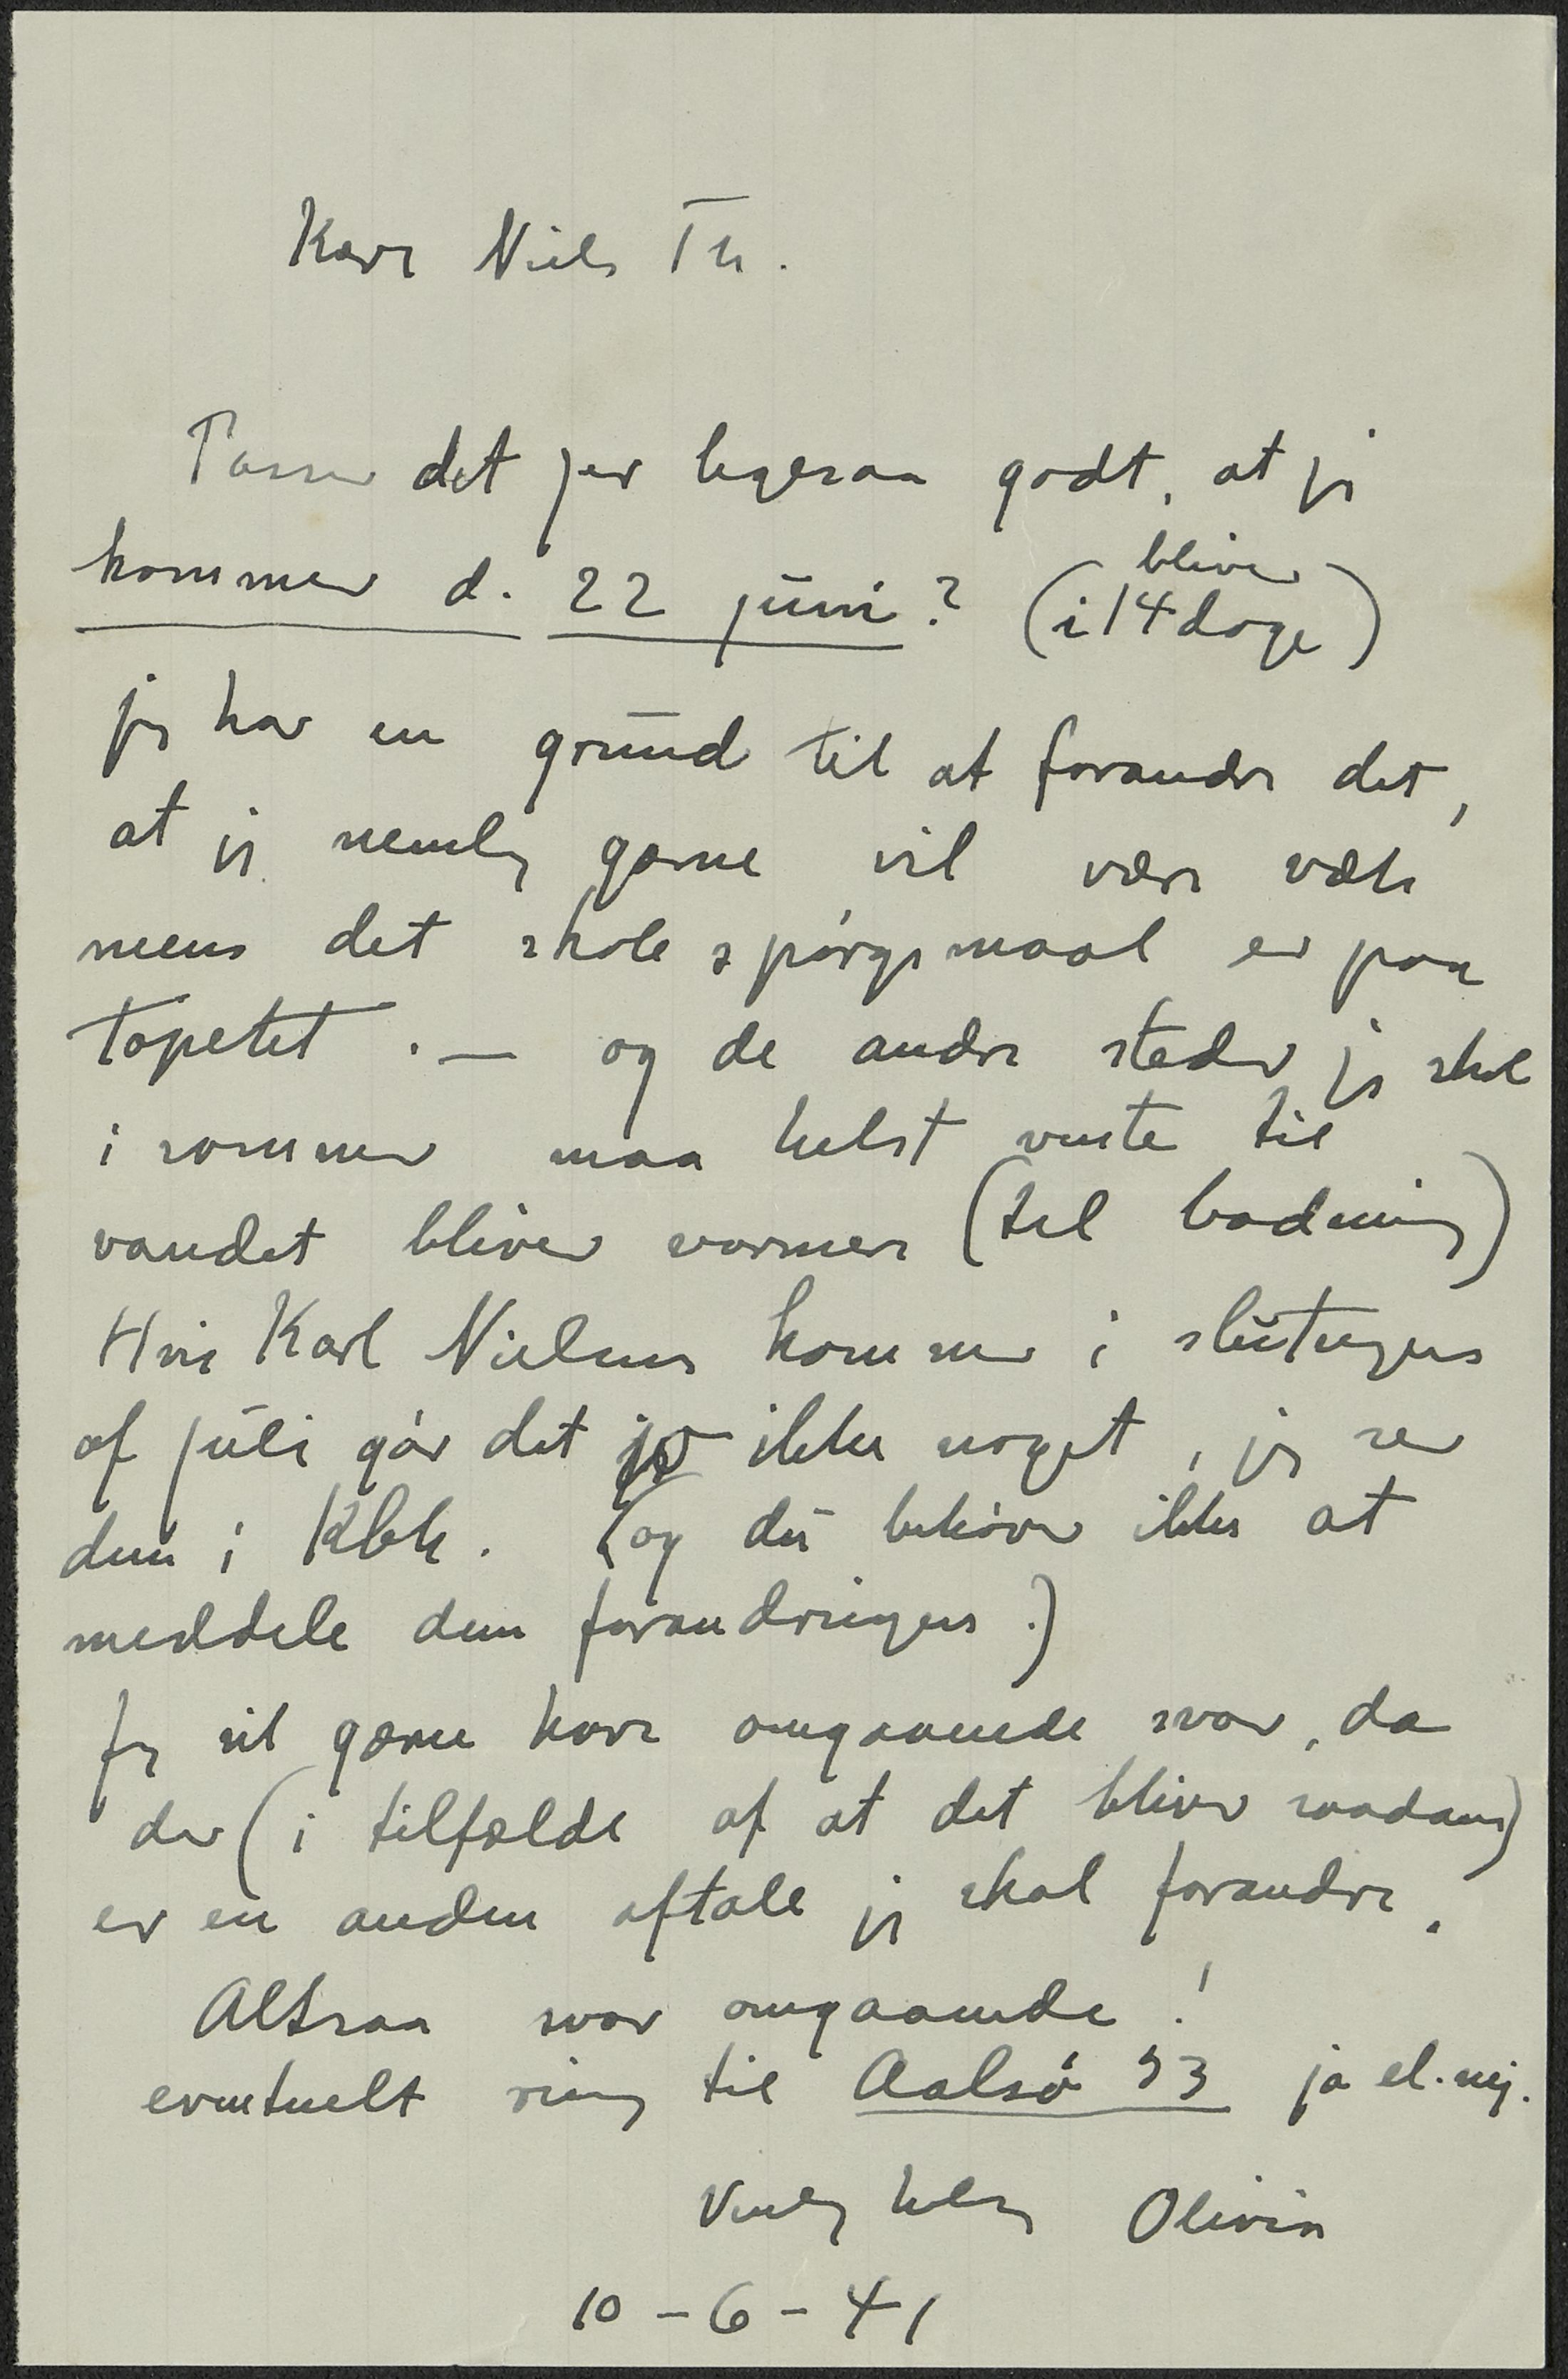 Kære Niels Th.
Passer det jer ligesaa godt, at jeg
kommer d. 22 juni? (bliver
i 14 dage)
jeg har en grund til at forandre det,
at jeg nemlig gærne vil være væk
mens det skole spørgsmaal er paa
tapetet. — og de andre steder jeg skal
i sommer maa helst vente til
vandet bliver varmere (til badning)
Hvis Karl Nielsens kommer i slutningen
af juli gør det jo ikke noget, jeg ser
dem i Kbh. (og du behøver ikke at
meddele dem forandringen.)
Jeg vil gærne have omgaaende svar, da
der (i tilfælde af at det bliver saadan)
er en anden aftale jeg skal forandre.
Altsaa svar omgaaende!
eventuelt ring til Aalsø 53 ja el. nej.
Venlig hilsen Olivia
10-6-41